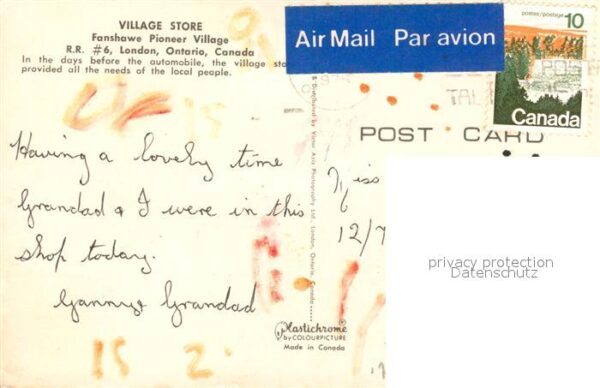 VILLAGE STORE
Fanshawe Pioneer Village
R.R. #6, London, Ontario, Canada
In the days before the automobile, the village sto
provided all the needs of the local people.
Air Mail Par avion
postes/postage 10
Canada
POST CARD
Having a lovely time
Grandad & I were in this
shop today.
Ganny & Grandad
15 2
Miss
12/7
& Distributed by Victor Aziz Photography Ltd., London, Ontario, Canada
Plastichrome®
by COLOURPICTURE
Made in Canada
privacy protection
Datenschutz